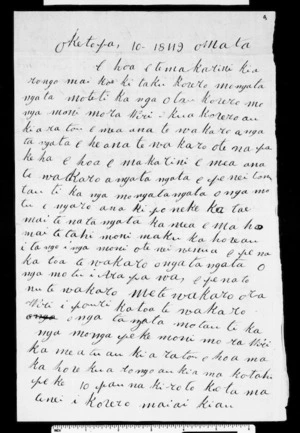 Oketopa, 10 - 1849 Omata
E hoa e te makarini kia
rongo mai koe ki taku korero mo nga
nga moteti ka nga o korero mo
nga moni mo ra Wiri i kua korero au
ki a ratou e mea ana te wakaro a nga
ta ngata e he ana te wakaro o te na pa
ke ha e hoa e makarini e mea ana
te wakaro a ngata ngata e pe nei
tau ti ka nga mo ngata ngata o nga mo
tu e ngaro ana ki po neke ka tae
mai te na ta ngata ka mea e ma ho
mai te tahi moni maku ka ho e au
i ta ngo i nga moni o te nei wenua e pe na
ka toa te wakaro o ngata ngata o
nga motu i Ara pa wa, e pe na to
nu te wakaro me te wakaro o ta
Wiri i pouri ka toa te wakaro
o nga ta ngata mo tau te ka
nga mo nga pe ke moni mo ra Wiri
ka mea tu au ki a ratou e hoa ma
ka hore kua rongo au ki a ma kotahi
pe ke 10 pau na ki roto ka ta ma
tenei i korero mai ai kiau